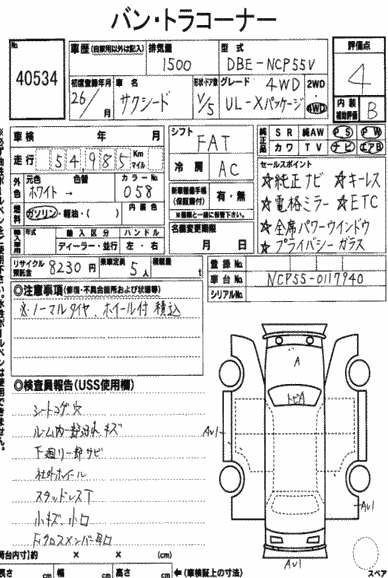 バン・トラコーナー
No 40534
車歴(自家用以外は記入) 排気量 1500 型式 DBE-NCP55V 評価点 4
初度登録年月 26/月 車名 サクシード 形状・ドア数 V/5 グレード 4WD UL-Xパッケージ 2WD 4WD 内装補助評価 B
車検 年 月 シフト FAT 純正品 SR 純AW PS PW
カワ TV ナビ エアB
走行 54985 Km マイル 冷房 AC
セールスポイント
☆純正ナビ ☆キーレス
☆電格ミラー ☆ETC
☆全席パワーウインドウ
☆プライバシーガラス
外色 元色 ホワイト→ 色替 カラーNo 058
新車整備手帳(保証書付) 有・無
燃料 ガソリン・軽油・( ) 内装色
輸入車 輸入区分 ハンドル
ディーラー・並行 左・右
名義変更期限 月 日
リサイクル預託金 8230円 乗車定員 5人 積載量 t
登録No.
車台No. NCP55-0117940
シリアルNo.
◎注意事項(修復・不具合箇所および状態等)
※ノーマルタイヤ、ホイール付 積込
◎検査員報告(USS使用欄)
シートコゲ穴
下廻り一部サビ
社外ホイール
スタッドレスT
小キズ、小凹
A
トビA
AU1
AU1
AU1
スペア
荷台内寸)約 × × (cm)
長さ cm 幅 cm 高さ cm ←(車検証上の寸法)